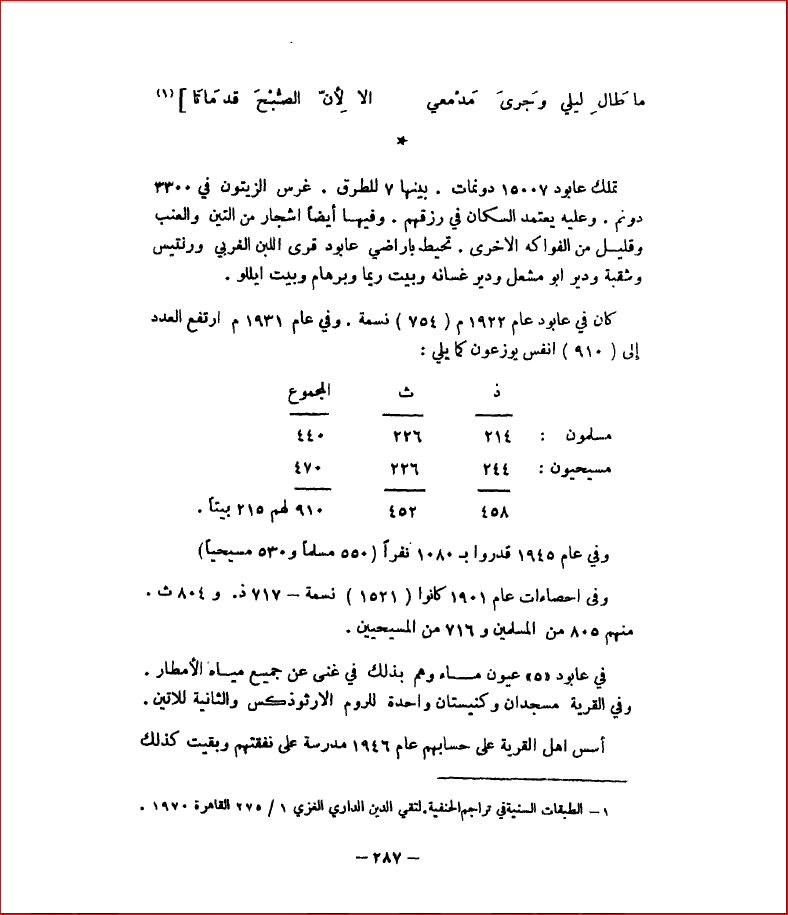 ما طَال ِ ليلي وَجرىَ مَدْمعي الا لِأنّ الصُّبْحَ قد مَاتَا ] (١)
*
تملك عابود ١٥٠٠٧ دونمات . بينها ٧ للطرق . غرس الزيتون في ٣٣٠٠
دونم . وعليه يعتمد السكان في رزقهم . وفيهـا أيضاً اشجار من التين والعنب
وقليـل من الفواكه الاخرى . تحيط باراضي عابود قرى اللبن الغربي ورنتيس
وشقبة ودير ابو مشعل ودير غسانه وبيت ريما وبرهام وبيت ايللو .
كان في عابود عام ١٩٢٢ م ( ٧٥٤ ) نسمة . وفي عام ١٩٣١ م ارتفع العدد
إلى ( ٩١٠ ) انفس يوزعون كما يلي :
ذ ث المجموع
مسلمون : ٢١٤ ٢٢٦ ٤٤٠
مسيحيون : ٢٤٤ ٢٢٦ ٤٧٠
٤٥٨ ٤٥٢ ٩١٠ لهم ٢١٥ بيتاً .
وفي عام ١٩٤٥ قدروا بـ ١٠٨٠ نفراً (٥٥٠ مسلماً و ٥٣٠ مسيحياً)
وفى احصاءات عام ١٩٠١ كانوا ( ١٥٢١ ) نسمة – ٧١٧ ذ. و ٨٠٤ ث .
منهم ٨٠٥ من المسلمين و ٧١٦ من المسيحيين .
في عابود «٥» عيون مـــاء وهم بذلك في غنى عن جميع ميـاه الأمطار .
وفي القرية مسجدان وكنيستان واحدة للروم الارثوذكس والثانية للاتين .
أسس اهل القرية على حسابهم عام ١٩٤٦ مدرسة على نفقتهم وبقيت كذلك
١ – الطبقات السنية في تراجم الحنفية . لتقي الدين الداري الغزي ١ / ٢٧٥ القاهرة ١٩٧٠ .
– ٢٨٧ –